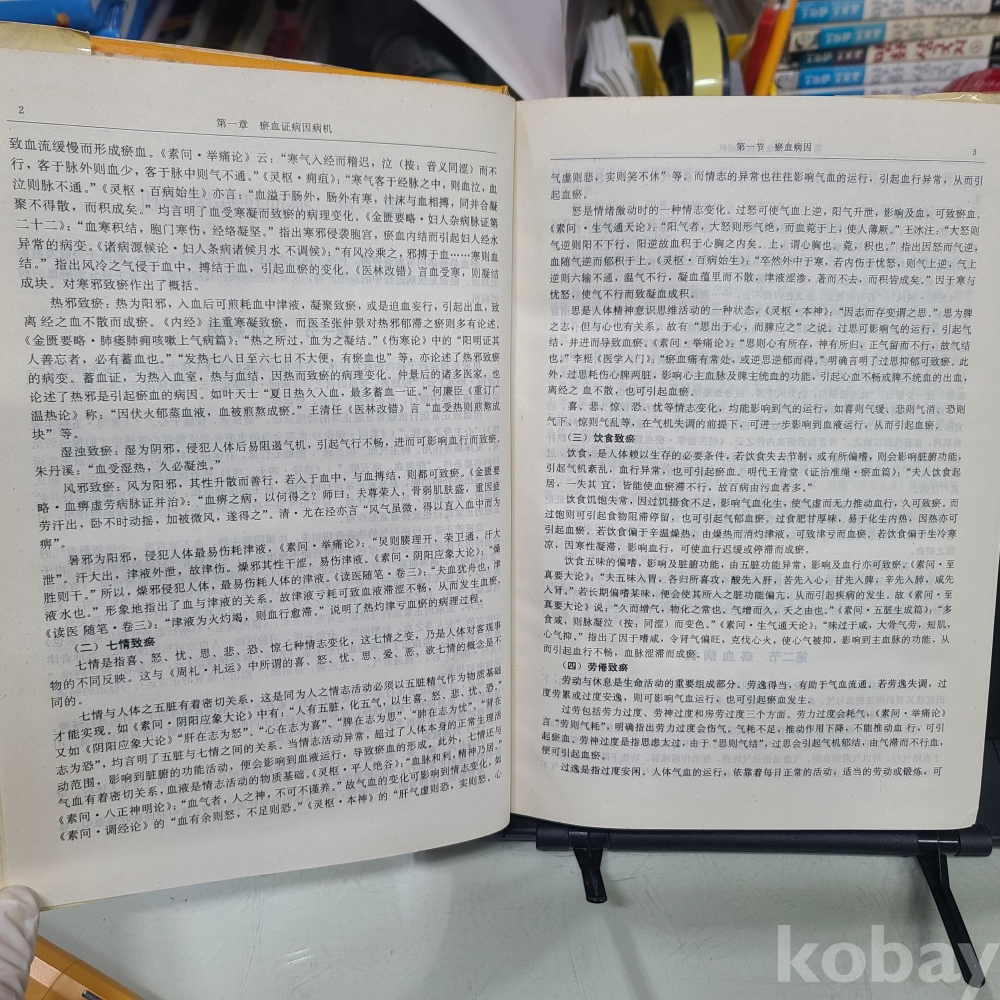 2
第一章 瘀血证病因病机
致血流缓慢而形成瘀血。《素问·举痛论》云：“寒气入经而稽迟，泣（按：音义同涩）而不
行，客于脉外则血少，客于脉中则气不通。”《灵枢·痈疽》：“寒气客于经脉之中，则血泣，血
泣则脉不通。”《灵枢·百病始生》亦言：“血溢于肠外，肠外有寒，汁沫与血相搏，同并合凝
聚不得散，而积成矣。”均言明了血受寒凝而致瘀的病理变化。《金匮要略·妇人杂病脉证
二十二》：“血寒积结，胞门寒伤，经络凝坚。”指出寒邪侵袭胞宫，瘀血内结而引起妇人经水
异常的病变。《诸病源候论·妇人条病诸候月水 不调候》：“有风冷乘之，邪搏于血……寒则血
结。”指出风冷之气侵于血中，搏结于血，引起血瘀的变化。《医林改错》言血受寒，则凝结
成块。对寒邪致瘀作出了概括。
热邪致瘀：热为阳邪，入血后可煎耗血中津液，凝聚致瘀，或是迫血妄行，引起出血，致
离 经之血不散而成瘀。《内经》注重寒凝致瘀，而医圣张仲景对热邪郁滞之瘀则多有论述，
《金匮要略·肺痿肺痈咳嗽上气病篇》：“热之所过，血为之凝结。”《伤寒论》中的“阳明证其
人善忘者，必有蓄血也。”“发热七八日至六七日不大便，有瘀血也”等，亦论述了热邪致瘀
的病变。蓄血证，为热入血室，热与血结，因热而致瘀的病理变化。仲景后的诸多医家，也
论述了热邪是引起瘀血的病因。如叶天士“夏日热久入血，最多蓄血一证。”何廉臣《重订广
温热论》称：“因伏火郁蒸血液，血被煎熬成瘀。”王清任《医林改错》言“血受热则煎熬成
块”等。
湿浊致瘀：湿为阴邪，侵犯人体后易阻遏气机，引起气行不畅，进而可影响血行而致瘀，
朱丹溪：“血受湿热，久必凝浊。”
风邪致瘀：风为阳邪，其性升散而善行，若入于血中，与血搏结，则都可致瘀。《金匮要
略·血痹虚劳病脉证并治》：“血痹之病，以何得之？师曰：夫尊荣人，骨弱肌肤盛，重因疲
劳汗出，卧不时动摇，加被微风，遂得之”。清·尤在泾亦言“风气虽微，得以直入血中而为
痹”。
暑邪为阳邪，侵犯人体最易伤耗津液，《素问·举痛论》：“炅则腠理开，荣卫通，汗大
泄”。汗大出，津液外泄，故津伤。燥邪其性干涩，易伤津液。《素问·阴阳应象大论》：“燥
胜则干。”所以，燥邪侵犯人体，最易伤耗人体的津液。《读医随笔·卷三》：“夫血犹舟也，津
液水也。”形象地指出了血与津液的关系。故津液亏耗可致血液滞涩不畅，从而发生血瘀，
《读医 随笔·卷三》：“津液为火灼竭，则血行愈滞。”说明了热灼津亏血瘀的病理过程。
（二）七情致瘀
七情是指喜、怒、忧、思、悲、恐、惊七种情志变化，这七情之变，乃是人体对客观事
物的不同反映。这与《周礼·礼运》中所谓的喜、怒、忧、思、爱、恶、欲七情的概念是不
同的。
七情与人体之五脏有着密切关系，这是同为人之情志活动必须以五脏精气作为物质基础
才能实现。如《素问·阴阳应象大论》中有：“人有五脏，化五气，以生喜、怒、悲、忧、恐。”
又如《阴阳应象大论》“肝在志为怒”、“心在志为喜”、“脾在志为思”、“肺在志为忧”、“肾在
志为恐”，均言明了五脏与七情之间的关系。当情志活动异常，超过了人体本身的正常生理活
动范围，影响到脏腑的功能活动，便会影响到血液运行，导致瘀血的形成。此外，七情还与
气血有着密切关系，血液是情志活动的物质基础。《灵枢·平人绝谷》：“血脉和利，精神乃居。”
《素问·八正神明论》：“血气者，人之神，不可不谨养。”故气血的变化可影响到情志变化，如
《素问·调经论》的“血有余则怒，不足则恐。”《灵枢·本神》的“肝气虚则恐，实则怒，心
第一节 瘀血病因
3
气虚则悲，实则笑不休”等。而情志的异常也往往影响气血的运行，引起血行异常，从而引
起血瘀。
怒是情绪激动时的一种情志变化。过怒可使气血上逆，阳气升泄，影响及血，可致瘀血。
《素问·生气通天论》：“阳气者，大怒则形气绝，而血菀于上，使人薄厥。”王冰注：“大怒则
气逆则阳不下行，阳逆故血积于心胸之内矣。上，谓心胸也。菀，积也。”指出因怒而气逆，
血随气逆而郁积于上。《灵枢·百病始生》：“卒然外中于寒，若内伤于忧怒，则气上逆，气上
逆则六输不通，温气不行，凝血蕴里而不散，津液涩渗，著而不去，而积皆成矣。”因于寒与
忧怒，使气不行而致凝血成积。
思是人体精神意识思维活动的一种状态，《灵枢·本神》：“因志而存变谓之思。”思为脾
之志，但与心也有关系。故有“思出于心，而脾应之”之说。过思可影响气的运行，引起气
结，并进而导致血瘀。《素问·举痛论》：“思则心有所存，神有所归，正气留而不行，故气结
也。”李梴《医学入门》：“瘀血痛有常处，或逆思逆郁而得。”明确言明了过思抑郁可致瘀。此
外，过思耗伤心脾两脏，影响心主血脉及脾主统血的功能，引起心血不畅或脾不统血的出血，
离经之 血不散，也可引起血瘀。
喜、悲、惊、恐、忧等情志变化，均能影响到气的运行，如喜则气缓、悲则气消、恐则
气下、惊则气乱等，在气机失调的前提下，可进一步影响到血液运行，从而引起血瘀。
（三）饮食致瘀
饮食，是人体赖以生存的必要条件，若饮食失去节制，或有所偏嗜，则会影响脏腑功能，
引起气机紊乱，血行异常，也可引起瘀血。明代王肯堂《证治准绳·瘀血篇》：“夫人饮食起
居，一失其 宜，皆能使血瘀滞不行，故百病由污血者多。”
饮食饥饱失常，因过饥摄食不足，影响气血化生，使气虚而无力推动血行，久可致瘀。而
过饱则可引起食物阻滞停留，也可引起气郁血瘀。过食肥甘厚味，易于化生内热，因热亦可
引起血瘀。若饮食偏于辛温燥热，由燥热而消灼津液，可致津亏而血瘀。若饮食偏于生冷寒
凉，因寒性凝滞，影响血行，可使血行迟缓或停滞而成瘀。
饮食五味的偏嗜，影响及脏腑功能，由五脏功能异常，影响及血行亦可致瘀。《素问·至
真要大论》：“夫五味入胃，各归所喜攻，酸先入肝，苦先入心，甘先入脾，辛先入肺，咸先
入肾。”若长期偏嗜某味，便会使其所入之脏功能偏亢，从而引起疾病的发生。故《素问·至
真要论》说：“久而增气，物化之常也。气增而久，夭之由也。”《素问·五脏生成篇》：“多
食咸，则脉凝泣（按：同涩）而变色。”《素问·生气通天论》：“味过于咸，大骨气劳，短肌，
心气抑。”指出了因于嗜咸，令肾气偏旺，克伐心火，使心气被抑，影响到主血脉的功能，从
而引起血行不畅，血脉涩滞而成瘀。
（四）劳倦致瘀
劳动与休息是生命活动的重要组成部分。劳逸得当，有助于气血流通。若劳逸失调，过
度劳累或过度安逸，则可影响气血运行，也可引起瘀血发生。
过劳包括劳力过度、劳神过度和房劳过度三个方面。劳力过度会耗气，《素问·举痛论》
言“劳则气耗”，明确指出劳力过度会伤气，气耗不足，推动作用下降，不能推动血 行，可引
起血瘀。劳神过度是指思虑太过，由于“思则气结”，过思会引起气机郁结，由气滞而不行血，
便可引起血瘀。
过逸是指过度安闲，人体气血的运行，依靠着每日正常的活动，适当的劳动或锻炼，可
kobay